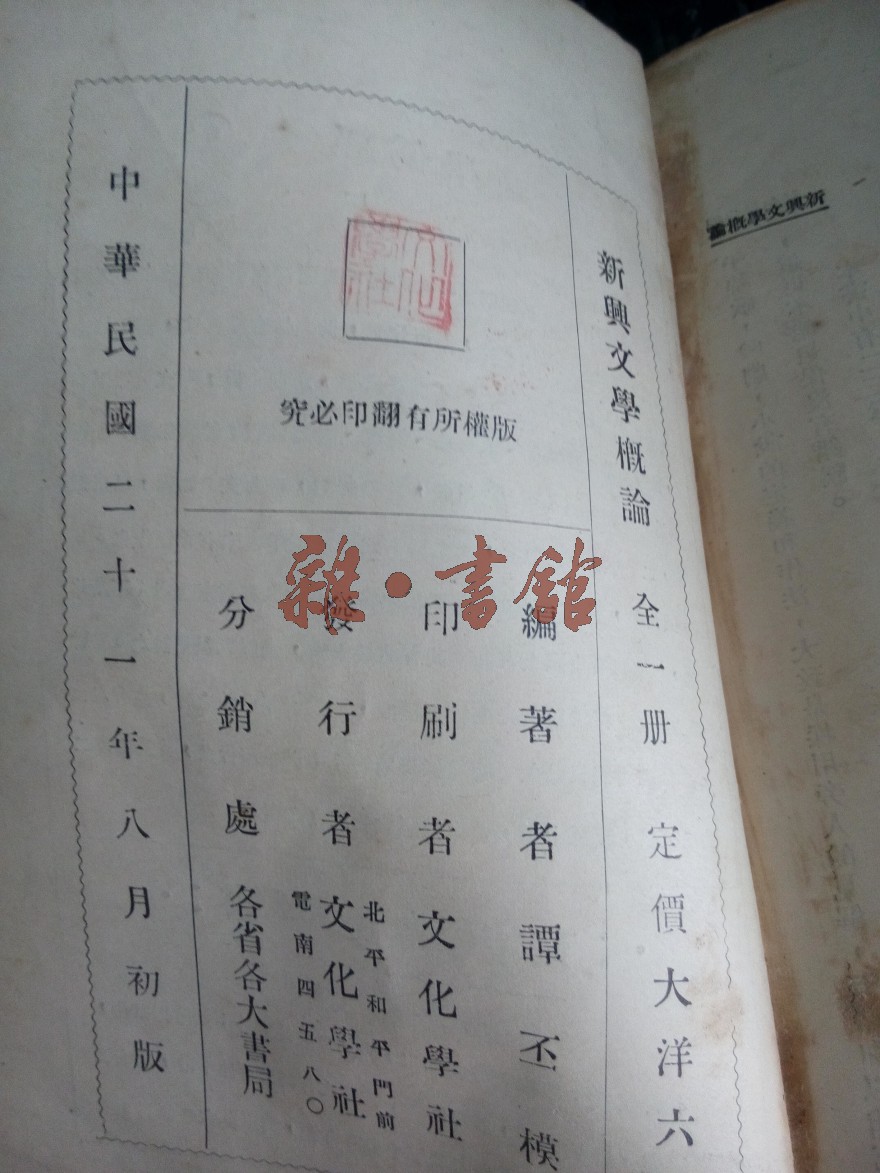 新興文學概論
新興文學概論 全一册 定價大洋六
文化學社
版權所有翻印必究
編著者 譚丕模
印刷者 文化學社
北平和平門前
發行者 文化學社
電南四五八〇
分銷處 各省各大書局
中華民國二十一年八月初版
雜·書館